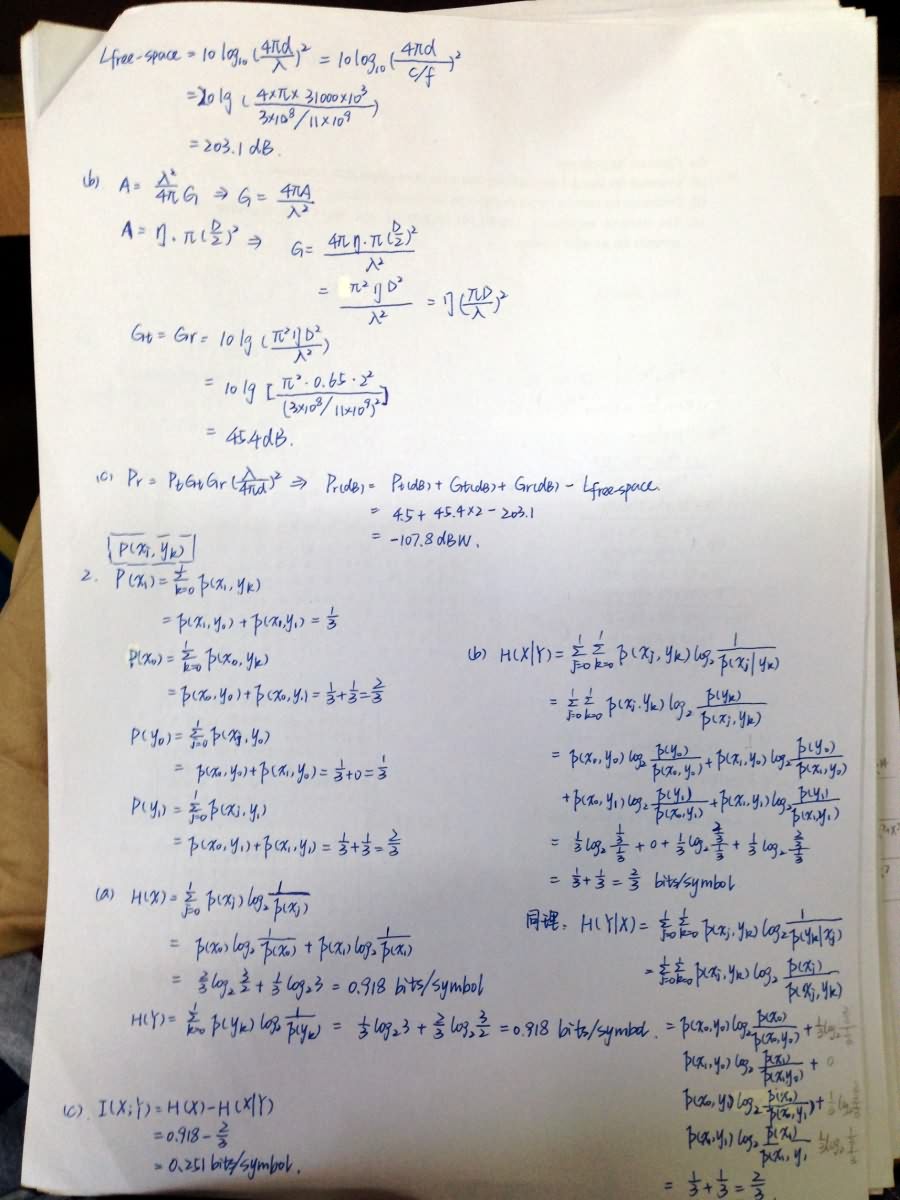 L free-space = 10 log₁₀ (4πd/λ)² = 10 log₁₀ (4πd / c/f)²
= 20 lg (4×π×31000×10³ / 3×10⁸/11×10⁹)
= 203.1 dB.
(b) A = λ²/4π G ⇒ G = 4πA/λ²
A = η·π(D/2)² ⇒ G = 4πη·π(D/2)² / λ²
= π²ηD² / λ² = η(πD/λ)²
Gt = Gr = 10 lg (π²ηD²/λ²)
= 10 lg [π²·0.65·2² / (3×10⁸/11×10⁹)²]
= 45.4 dB.
(c) Pr = PtGtGr(λ/4πd)² ⇒ Pr(dB) = Pt(dB) + Gt(dB) + Gr(dB) − Lfree-space.
= 4.5 + 45.4×2 − 203.1
= −107.8 dBW.
P(xj, yk)
2. P(x₁) = Σ¹k=0 p(x₁, yk)
= p(x₁, y₀) + p(x₁, y₁) = 1/3
P(x₀) = Σ¹k=0 p(x₀, yk)
= p(x₀, y₀) + p(x₀, y₁) = 1/3 + 1/3 = 2/3
P(y₀) = Σ¹j=0 p(xj, y₀)
= p(x₀, y₀) + p(x₁, y₀) = 1/3 + 0 = 1/3
P(y₁) = Σ¹j=0 p(xj, y₁)
= p(x₀, y₁) + p(x₁, y₁) = 1/3 + 1/3 = 2/3
(a) H(X) = Σ¹j=0 p(xj) log₂ 1/p(xj)
= p(x₀) log₂ 1/p(x₀) + p(x₁) log₂ 1/p(x₁)
= 2/3 log₂ 3/2 + 1/3 log₂ 3 = 0.918 bits/symbol
H(Y) = Σ¹k=0 p(yk) log₂ 1/p(yk) = 1/3 log₂ 3 + 2/3 log₂ 3/2 = 0.918 bits/symbol.
(b) H(X|Y) = Σ¹j=0 Σ¹k=0 p(xj, yk) log₂ 1/p(xj|yk)
= Σ¹j=0 Σ¹k=0 p(xj, yk) log₂ p(yk)/p(xj, yk)
= p(x₀, y₀) log₂ p(y₀)/p(x₀, y₀) + p(x₁, y₀) log₂ p(y₀)/p(x₁, y₀)
+ p(x₀, y₁) log₂ p(y₁)/p(x₀, y₁) + p(x₁, y₁) log₂ p(y₁)/p(x₁, y₁)
= 1/3 log₂ (1/3)/(1/3) + 0 + 1/3 log₂ (2/3)/(1/3) + 1/3 log₂ (2/3)/(1/3)
= 1/3 + 1/3 = 2/3 bits/symbol
同理: H(Y|X) = Σ¹j=0 Σ¹k=0 p(xj, yk) log₂ 1/p(yk|xj)
= Σ¹j=0 Σ¹k=0 p(xj, yk) log₂ p(xj)/p(xj, yk)
= p(x₀, y₀) log₂ p(x₀)/p(x₀, y₀) +
p(x₁, y₀) log₂ p(x₁)/p(x₁, y₀) + 0
p(x₀, y₁) log₂ p(x₀)/p(x₀, y₁) +
p(x₁, y₁) log₂ p(x₁)/p(x₁, y₁
= 1/3 + 1/3 = 2/3
(c) I(X;Y) = H(X) − H(X|Y)
= 0.918 − 2/3
= 0.251 bits/symbol.